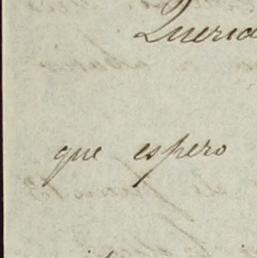 Querid
que espero